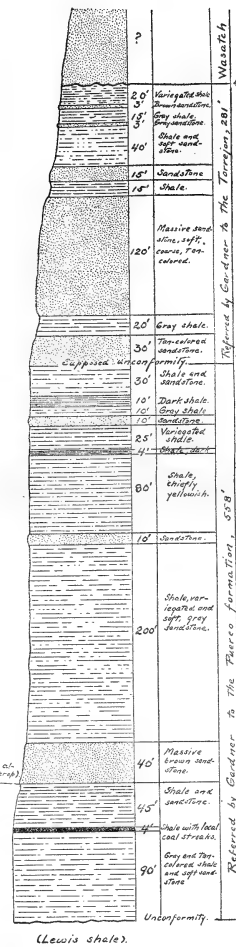 ?
Wasatch
20' Variegated shale
3' Brown sandstone.
15' Gray shale.
3' Gray sandstone.
40' Shale and
soft sand-
stone.
15' Sandstone
15' Shale.
120' Massive sand-
stone, soft,
coarse, tan-
colored.
20' Gray shale.
30' Tan-colored
sandstone.
Supposed unconformity.
30' Shale and
sandstone.
10' Dark shale.
10' Gray shale
10' Sandstone.
25' Variegated
shale.
4' Shale, dark
80' Shale,
chiefly
yellowish.
10' Sandstone.
200' Shale, var-
iegated and
soft, gray
sandstone.
40' Massive
brown sand-
stone.
45' Shale and
sandstone.
4' Shale with local
coal streaks.
90' Gray and tan-
colored shale
and soft sand-
stone
Unconformity.
(Lewis shale).
Referred by Gardner to the Torrejon, 281'
Referred by Gardner to the Puerco formation, 558'